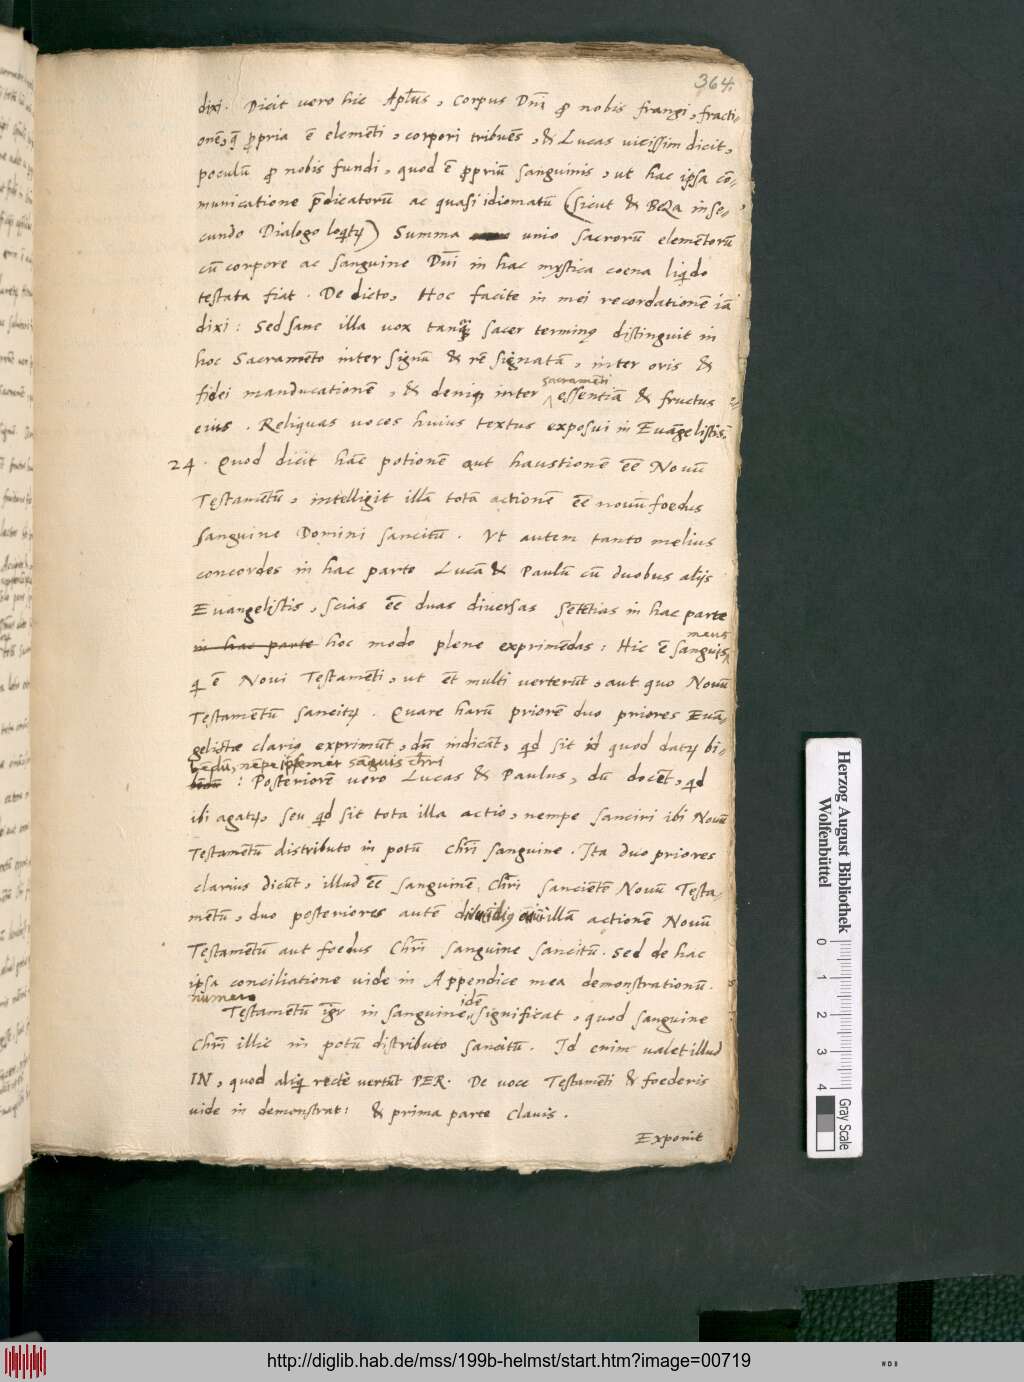 364.
dixi. Dicit vero hic Aplūs, corpus Dn̄i p nobis frangi, fracti-
onē, q̄ ppria ē elemēti, corpori tribuēs, & Lucas vicissim dicit,
poculū p nobis fundi, quod ē ppriū sanguinis, ut hac ipsa cō-
municatione p̄dicatorū ac quasi idiomatū (sicut & BEZa in se-
cundo Dialogo loqitꝛ) Summa unio sacrorū elemētorū
cū corpore ac sanguine Dn̄i in hac mystica coena liqido
testata fiat. De dicto, Hoc facite in mei recordationē iā
dixi: Sed sane illa vox tanq̄ sacer terminꝰ distinguit in
hoc Sacramēto inter signū & rē signatā, inter oris &
fidei manducationē, & deniqꝫ inter sacramēti essentiā & fructus
eius. Reliquas voces huius textus exposui in Evāgelistis.
24. Quod dicit hāc potionē aut haustionē ēē Novū
Testamētū, intelligit illā totā actionē ēē novū foedus
sanguine Domini sancitū. Ut autem tanto melius
concordes in hac parte Lucā & Paulū cū duobus alijs
Evangelistis, scias ēē duas diversas sētētias in hac parte
in hac parte hoc modo plene exprimēdas: Hic ē sanguis meus
q ē Novi Testamēti, ut ēt multi verterūt, aut quo Novū
Testamētū sancitꝛ. Quare harū priorē duo priores Evā-
gelistæ clariꝰ exprimūt, dū indicāt, qd sit id quod datꝛ bi-
bēdū, nēpe ipsemet sāguis Chr̄i
: Posteriorē vero Lucas & Paulus, dū docēt, qd
ibi agatꝛ, seu qd sit tota illa actio, nempe sanciri ibi Novū
Testamētū distributo in potū Chr̄i sanguine. Ita duo priores
clarius dicūt, illud ēē sanguinē Chr̄i sanciētē Novū Testa-
mētū, duo posteriores autē illā actionē Novū
Testamētū aut foedus Chr̄i sanguine sancitū. Sed de hac
ipsa conciliatione vide in Appendice mea demonstrationū.
numero
Testamētū igr in sanguine idē significat, quod sanguine
Chr̄i illic in potū distributo sancitū. Id enim valet illud
IN, quod aliqi recte vertūt PER. De voce Testamēti & foederis
vide in demonstrat: & prima parte Clavis.
Exponit
Herzog August Bibliothek
Wolfenbüttel
0 1 2 3 4
Gray Scale
http://diglib.hab.de/mss/199b-helmst/start.htm?image=00719
WDB